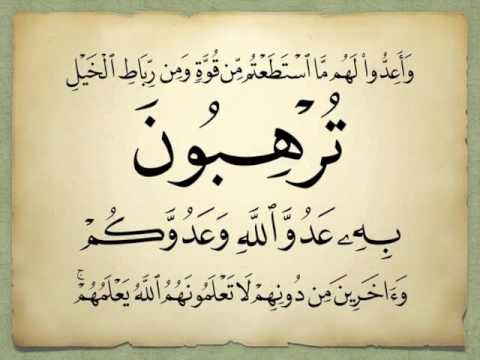 وَأَعِدُّوا۟ لَهُم مَّا ٱسْتَطَعْتُم مِّن قُوَّةٍ وَمِن رِّبَاطِ ٱلْخَيْلِ
تُرْهِبُونَ
بِهِۦ عَدُوَّ ٱللَّهِ وَعَدُوَّكُمْ
وَءَاخَرِينَ مِن دُونِهِمْ لَا تَعْلَمُونَهُمُ ٱللَّهُ يَعْلَمُهُمْ ۚ